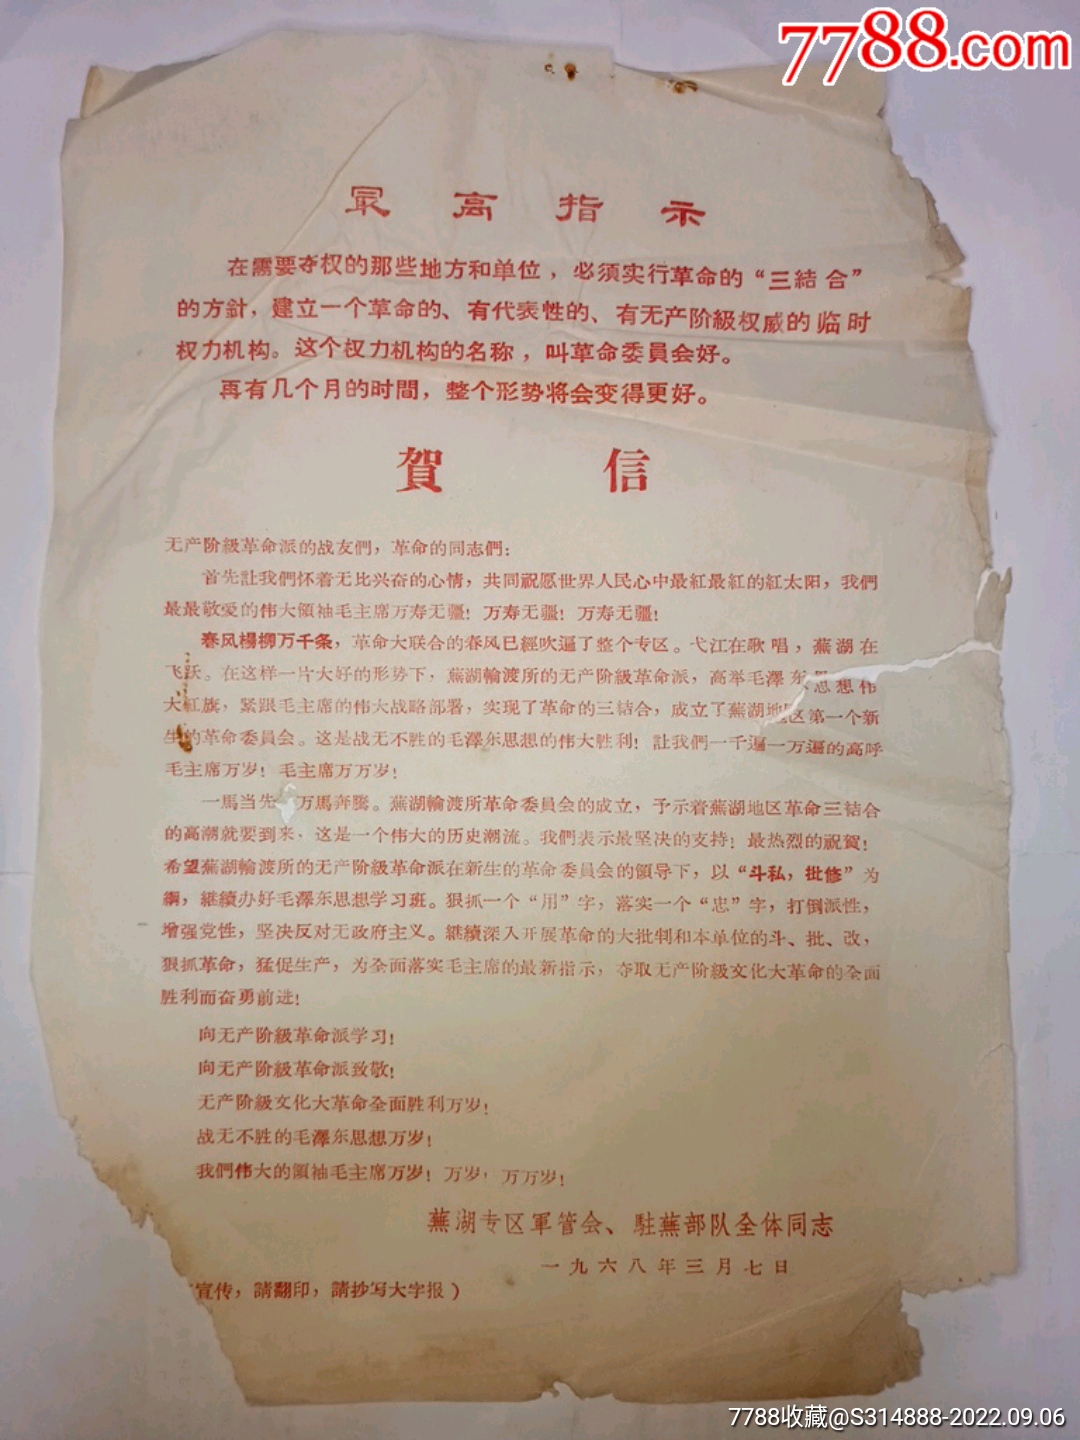 7788.com
最高指示
在需要夺权的那些地方和单位，必須实行革命的“三結合”
的方針，建立一个革命的、有代表性的、有无产阶級权威的临时
权力机构。这个权力机构的名称，叫革命委員会好。
再有几个月的时間，整个形势将会变得更好。
賀信
无产阶級革命派的战友們，革命的同志們：
首先註我們怀着无比兴奋的心情，共同祝愿世界人民心中最紅最紅的紅太阳，我們
最最敬爱的伟大領袖毛主席万寿无疆！万寿无疆！万寿无疆！
春风楊柳万千条，革命大联合的春风已經吹遍了整个专区。弋江在歌唱，蕪湖在
飞跃。在这样一片大好的形势下，蕪湖輪渡所的无产阶級革命派，高举毛澤东思想伟
大紅旗，紧跟毛主席的伟大战略部署，实現了革命的三結合，成立了蕪湖地区第一个新
生的革命委員会。这是战无不胜的毛澤东思想的伟大胜利！註我們一千遍一万遍的高呼
毛主席万岁！毛主席万万岁！
一馬当先 万馬奔騰。蕪湖輪渡所革命委員会的成立，予示着蕪湖地区革命三結合
的高潮就要到来，这是一个伟大的历史潮流。我們表示最坚决的支持！最热烈的祝賀！
希望蕪湖輪渡所的无产阶級革命派在新生的革命委員会的領导下，以“斗私，批修”为
綱，継續办好毛澤东思想学习班。狠抓一个“用”字，落实一个“忠”字，打倒派性，
增强党性，坚决反对无政府主义。継續深入开展革命的大批判和本单位的斗、批、改，
狠抓革命，猛促生产，为全面落实毛主席的最新指示，夺取无产阶級文化大革命的全面
胜利而奋勇前进！
向无产阶級革命派学习！
向无产阶級革命派致敬！
无产阶級文化大革命全面胜利万岁！
战无不胜的毛澤东思想万岁！
我們伟大的領袖毛主席万岁！万岁！万万岁！
蕪湖专区軍管会、駐蕪部队全体同志
一九六八年三月七日
宣传，請翻印，請抄写大字报）
7788收藏@S314888-2022.09.06